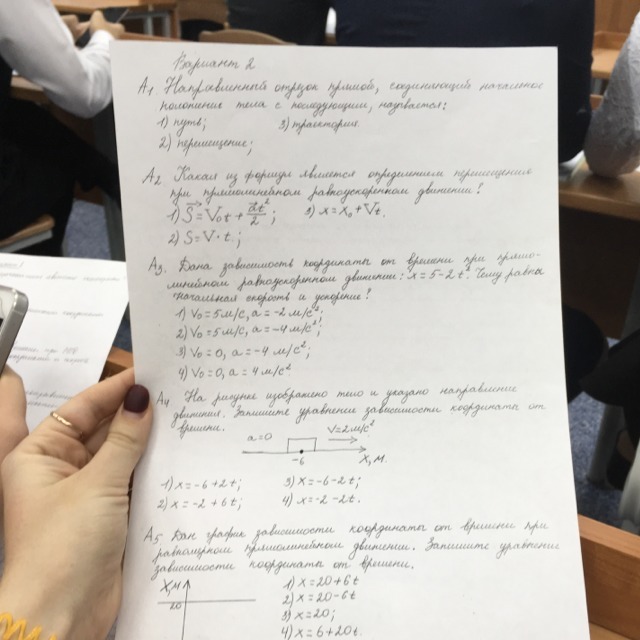 Вариант 2
А1. Направленный отрезок прямой, соединяющий начальное
положение тела с последующим, называется:
1) путь; 3) траектория.
2) перемещение;
А2. Какая из формул является определением перемещения
при прямолинейном равноускоренном движении?
1) S⃗=V₀t + at²/2; 3) x=x₀+Vt.
2) S=V·t.;
А3. Дана зависимость координаты от времени при прямо-
линейном равноускоренном движении: x=5-2t². Чему равны
начальная скорость и ускорение?
1) V₀=5м/с, a=-2 м/с²;
2) V₀=5м/с, a=-4м/с²;
3) V₀=0, a=-4 м/с²;
4) V₀=0, a=4 м/с².
А4. На рисунке изображено тело и указано направление
движения. Запишите уравнение зависимости координаты от
времени.
a=0 V=2м/с²
-6 X, м.
1) x=-6+2t; 3) x=-6-2t;
2) x=-2+6t; 4) x=-2-2t.
А5. Дан график зависимости координаты от времени при
равномерном прямолинейном движении. Запишите уравнение
зависимости координаты от времени.
X,м 1) x=20+6t
20 2) x=20-6t
3) x=20;
4) x=6+20t.